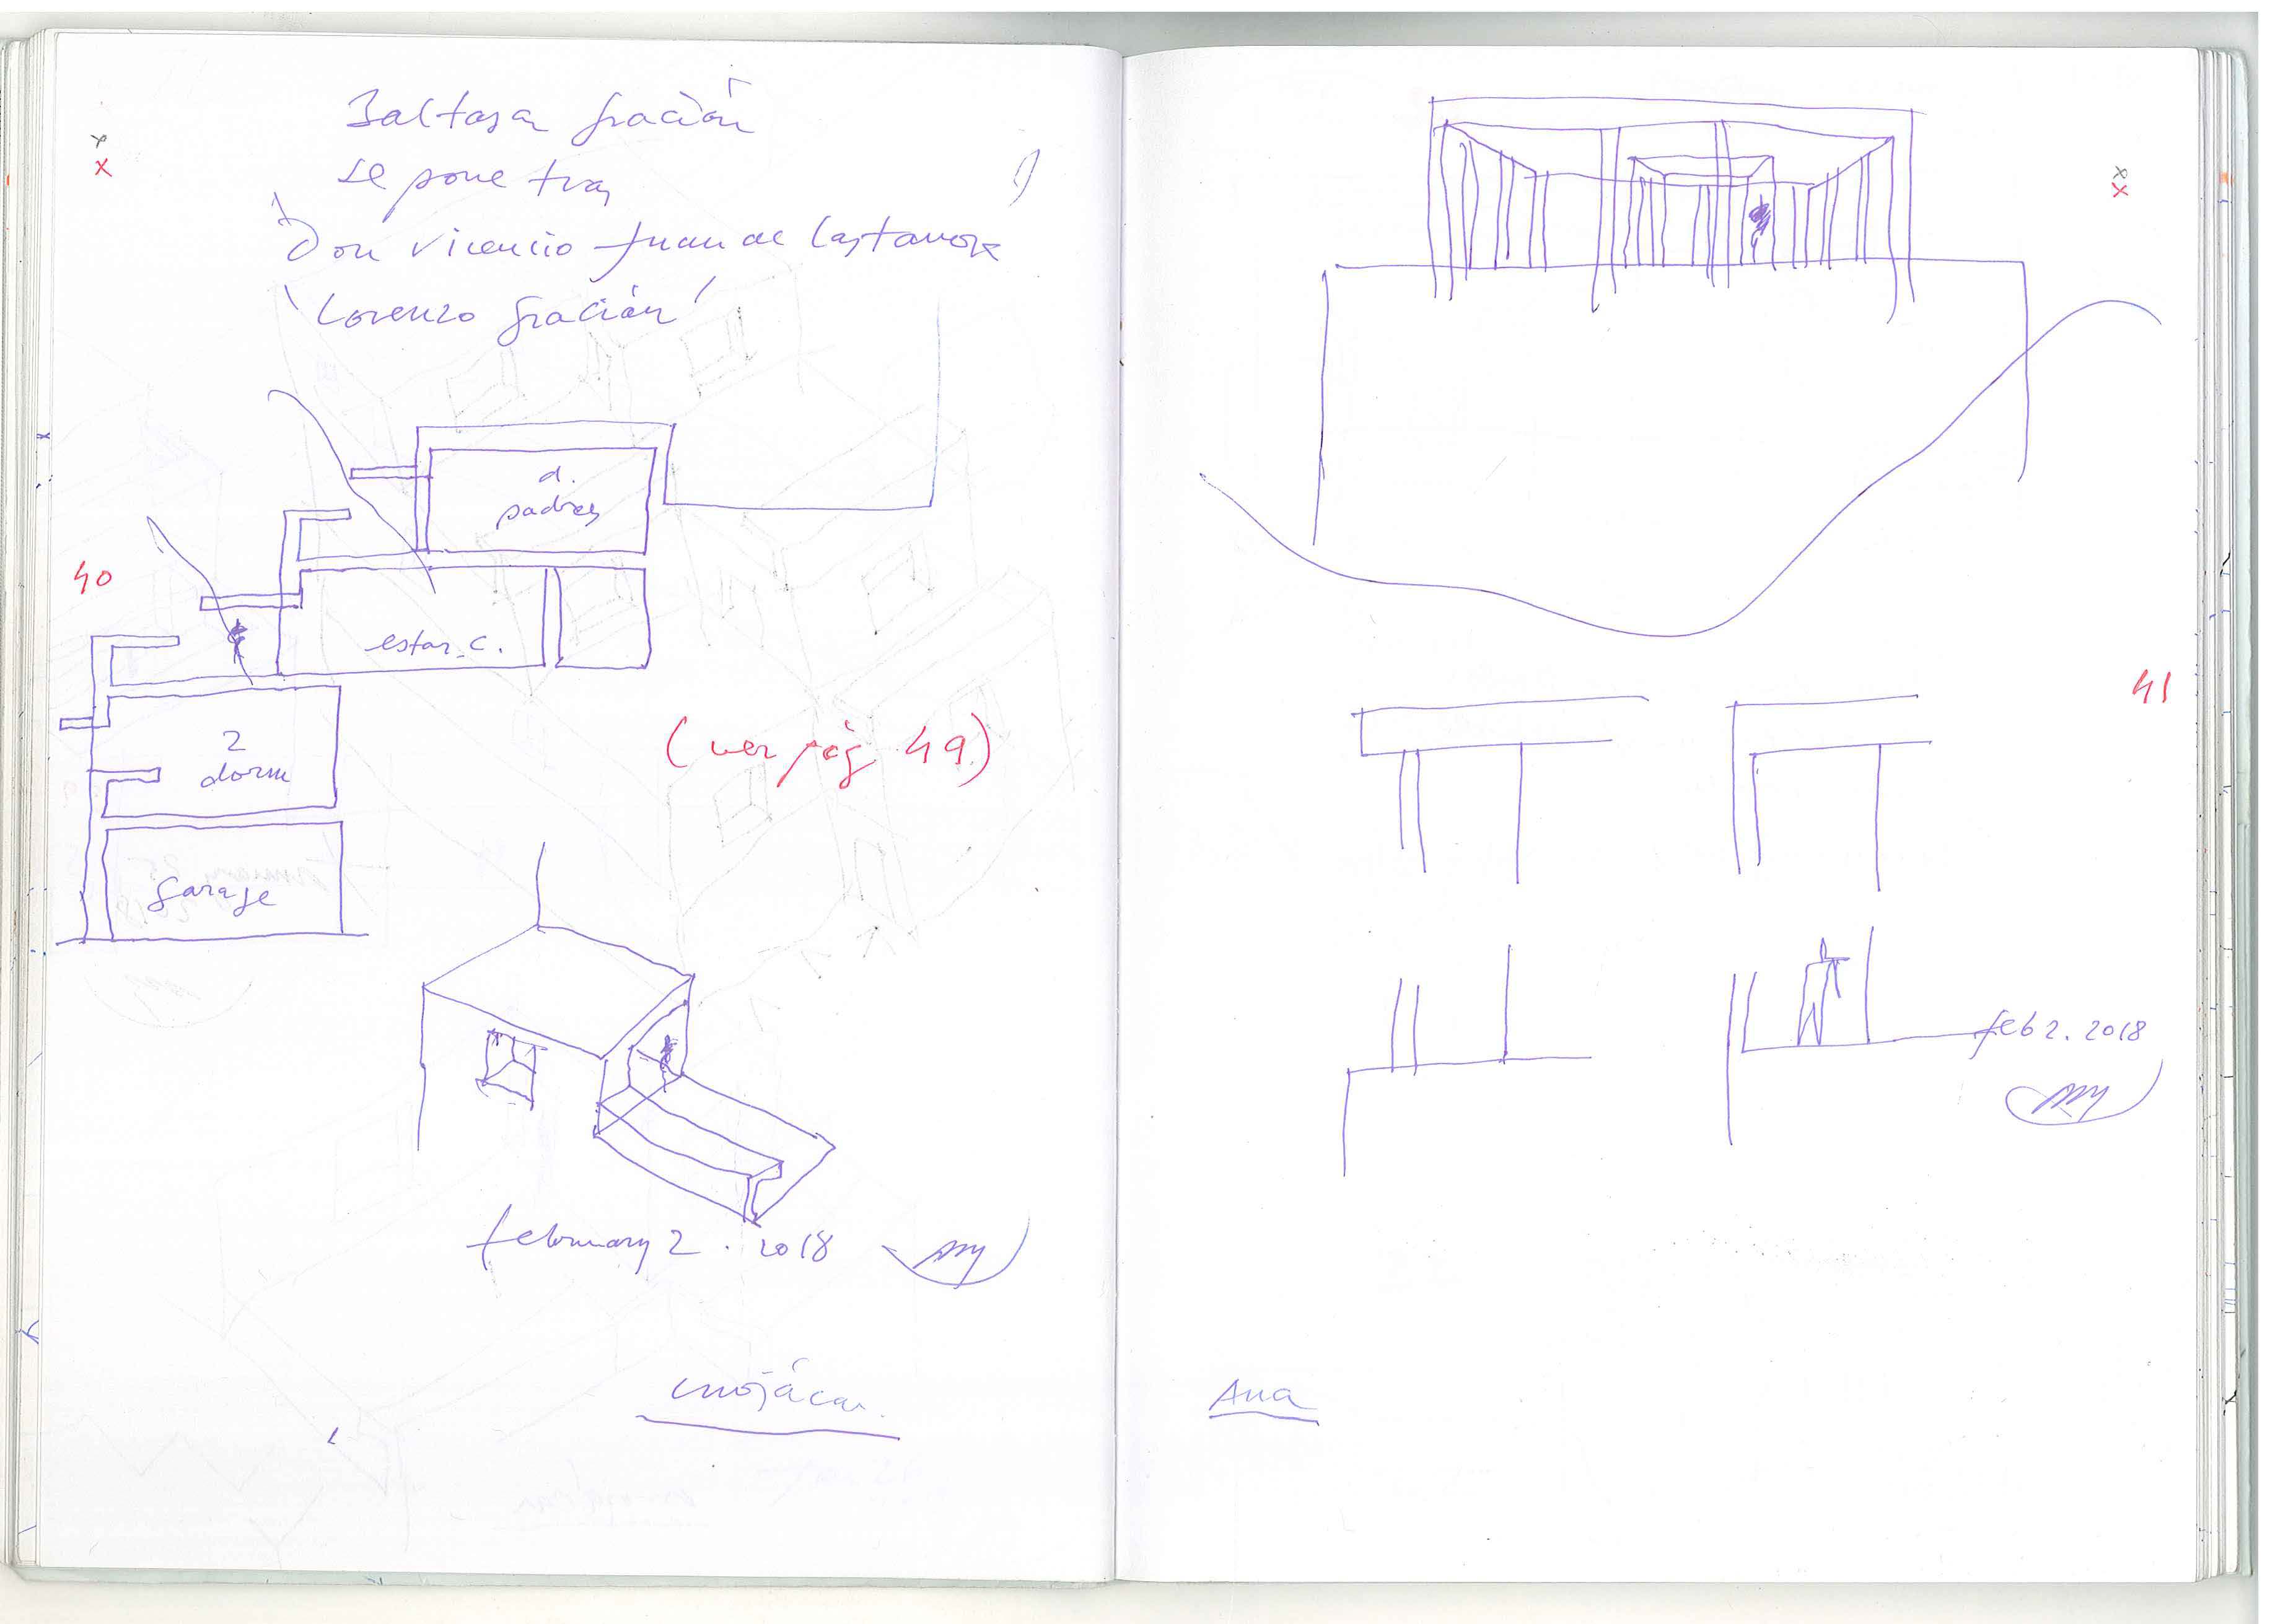 Baltasar Gracián
se pone tras
"Don Vicencio Juan de Lastanosa"
'Lorenzo Gracián'
d.
padres
40
estar. c.
2
dorm
(ver pág. 49)
garage
february 2. 2018
mojácar.
41
feb 2. 2018
Ana